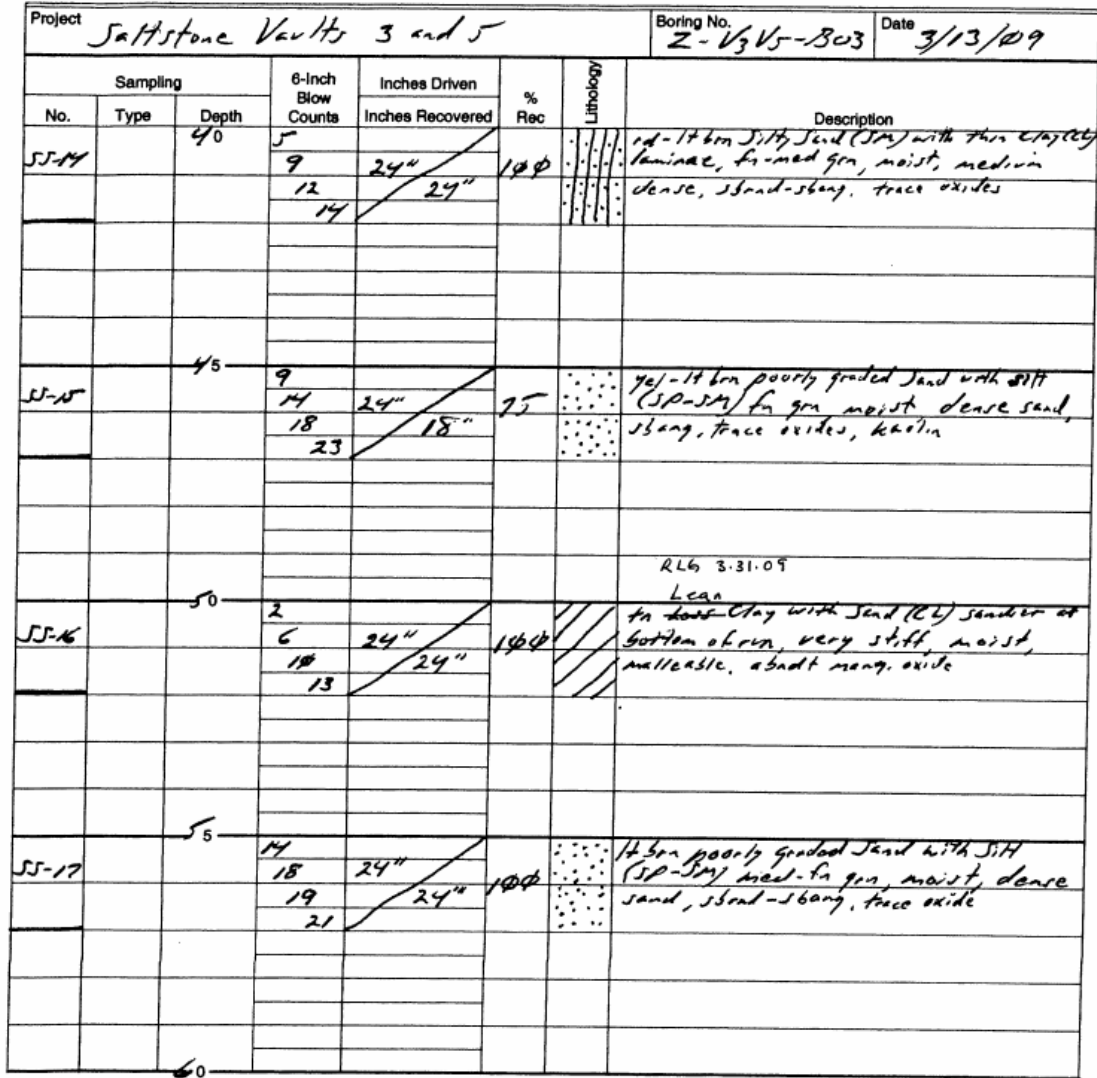 Project Saltstone Vaults 3 and 5
Boring No. Z-V3V5-B03
Date 3/13/09
Sampling
No. Type Depth
6-Inch Blow Counts
Inches Driven
Inches Recovered
% Rec
Lithology
Description
40
SS-14
5
9
12
14
24"
24"
100
rd-lt brn Silty Sand (SM) with thin Clay (CL)
laminae, fn-med grn, moist, medium
dense, sbrnd-sbang, trace oxides
45
SS-15
9
14
18
23
24"
18"
75
yel-lt brn poorly graded Sand with silt
(SP-SM) fn grn moist, dense sand,
sbang, trace oxides, kaolin
RLG 3.31.09
Lean
50
SS-16
2
6
10
13
24"
24"
100
tn Clay with Sand (CL) sandier at
bottom of run, very stiff, moist,
malleable, abndt mang. oxide
55
SS-17
14
18
19
21
24"
24"
100
lt brn poorly graded Sand with Silt
(SP-SM) med-fn grn, moist, dense
sand, sbrnd-sbang, trace oxide
60